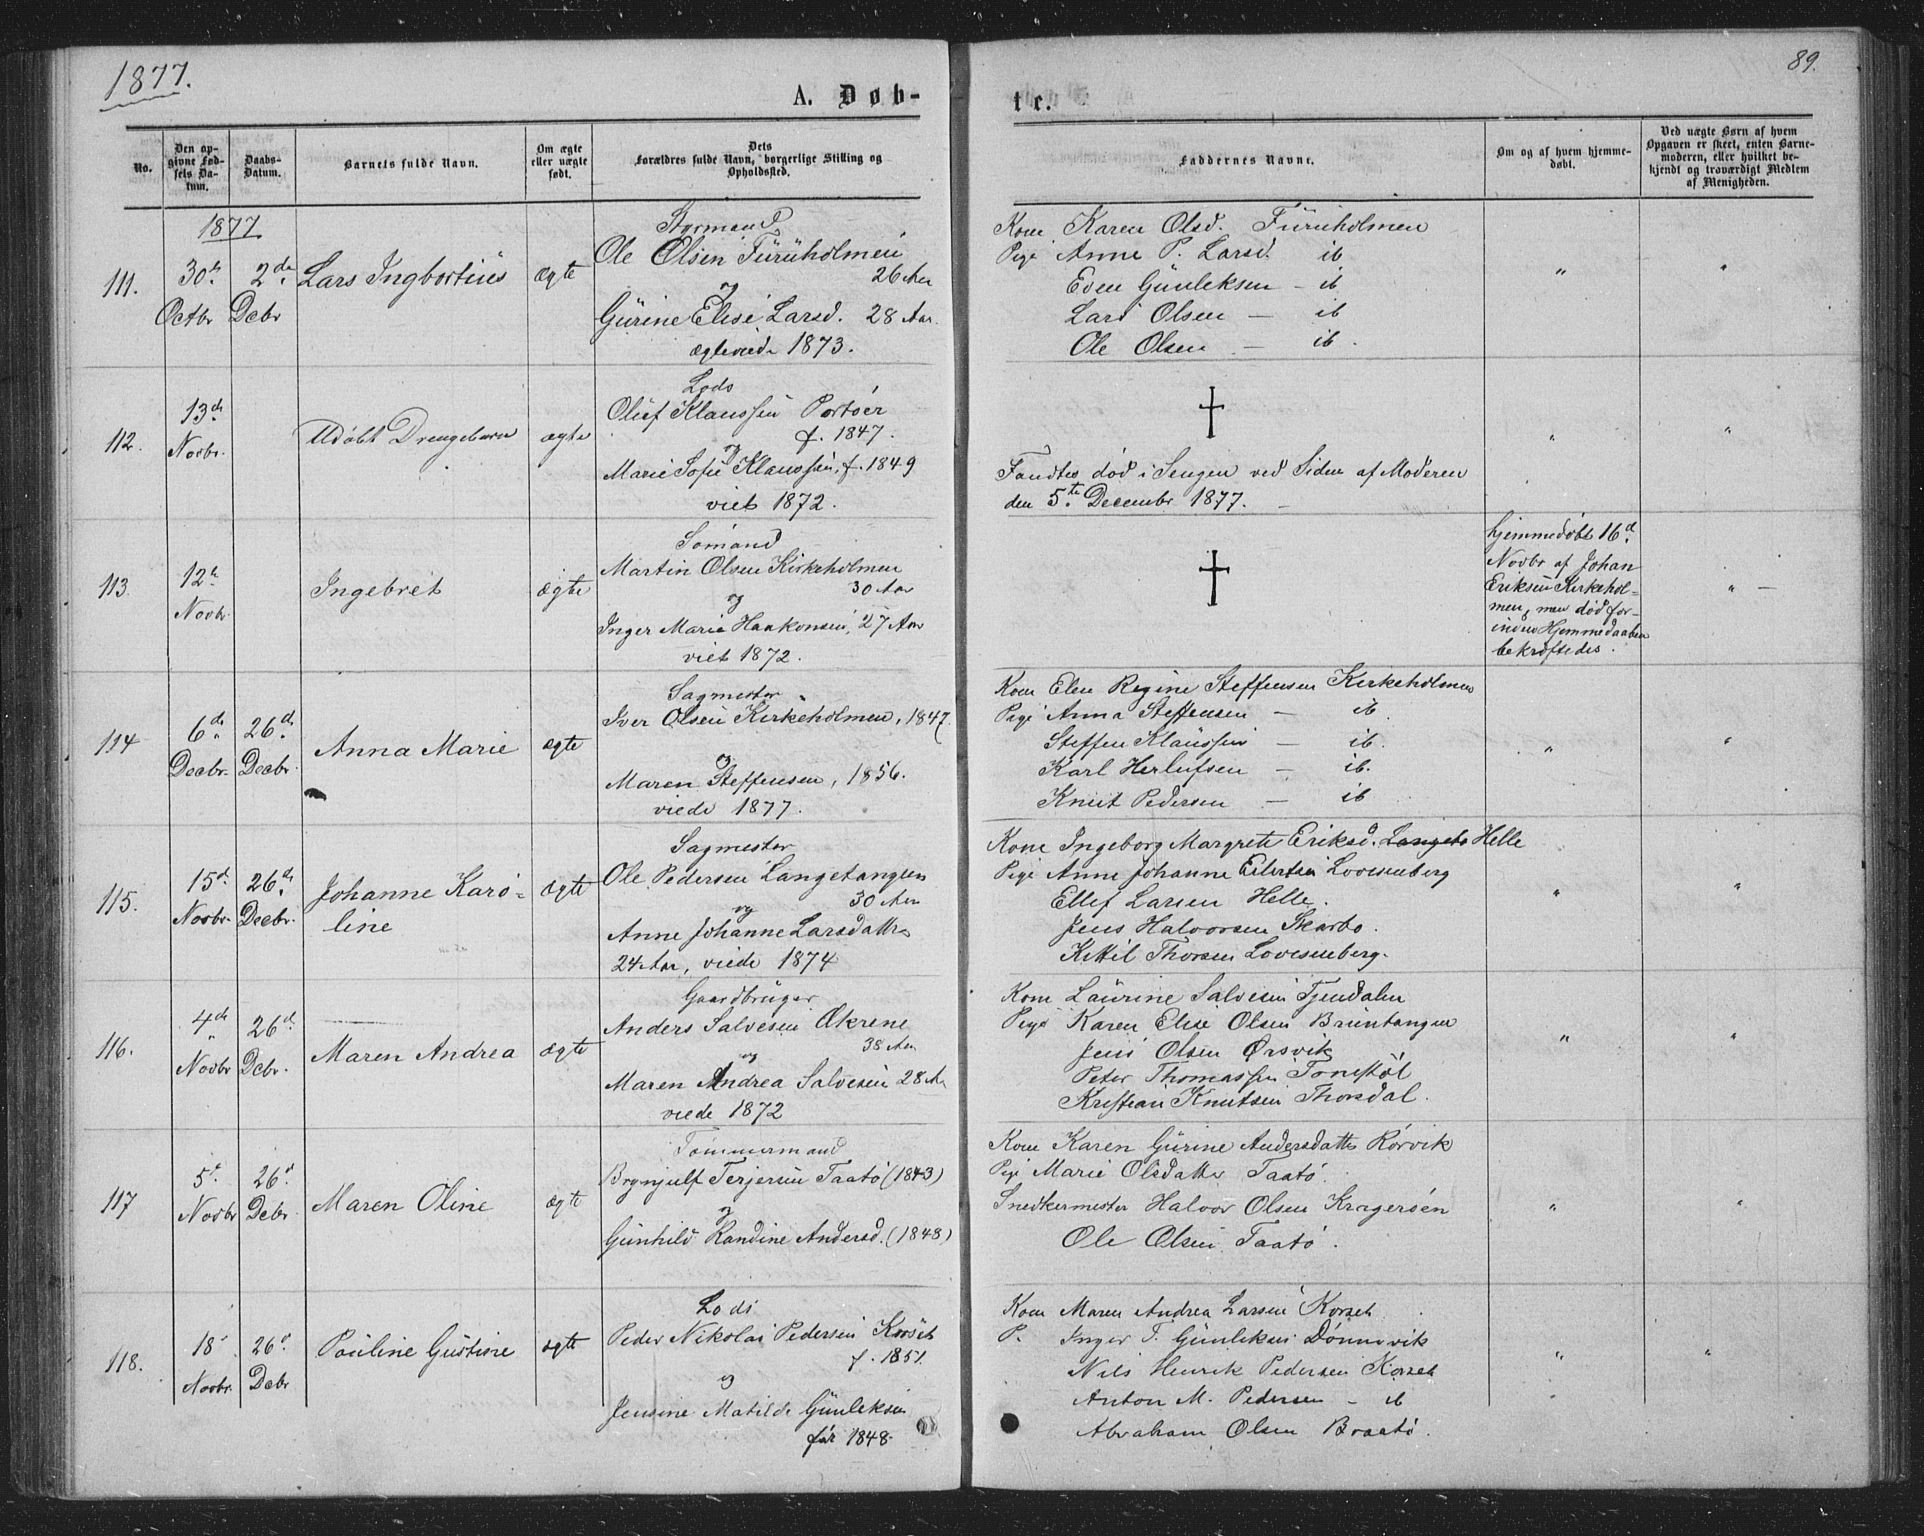 1877.
89.
A. Døb-
te.
No.
Den op-
givne Fød-
sels Da-
tum.
Daabs-
Datum.
Barnets fulde Navn.
Om ægte
eller uægte
født.
Dets
Forældres fulde Navn, borgerlige Stilling og
Opholdssted.
Faddernes Navne.
Om og af hvem hjemme-
døbt.
Ved uægte Børn af hvem
Opgaven er skeet, enten Barne-
moderen, eller hvilket be-
kjendt og troværdigt Medlem
af Menigheden.
1877
111.
30te
Octbr
2de
Dcbr
Lars Ingbortius
ægte
Styrmand
Ole Olsen Furuholmen
26 Aar
og
Gurine Elise Larsd. 28 Aar.
ægteviede 1873.
Kone Karen Olsd. Furuholmen
Pige Anne P. Larsd. ib
Even Gunleksen - ib
Lars Olsen - ib
Ole Olsen - ib.
"
"
112.
13de
Novbr.
Udøbt Drengebarn
ægte
Lods
Oluf Klaussen Portøer
f. 1847.
og
Marie Sofie Klaussen, f. 1849
viet 1872.
†
Fandtes død i Sengen ved Siden af Moderen
den 5te Decembr 1877.
"
"
113.
12te
Novbr.
Ingebret
ægte
Sømand
Martin Olsen Kirkeholmen
30 Aar
og
Inger Marie Haakonsen, 27 Aar
viet 1872.
†
hjemmedøbt 16d
Novbr af Johan
Eriksen Kirkehol-
men, men død for-
inden Hjemmedaaben
bekræftedes.
"
114
6de
Decbr.
26de
Decbr.
Anna Marie
ægte
Sagmester
Iver Olsen Kirkeholmen, 1847.
og
Maren Steffensen, 1856.
viede 1877.
Kone Elen Regine Steffensen Kirkeholmen
Pige Anna Steffensen - ib.
Steffen Klaussen - ib.
Karl Herlufsen - ib.
Knut Pedersen - ib
"
"
115.
15de
Novbr.
26de
Decbr.
Johanne Karo-
line
ægte
Sagmester
Ole Pedersen Langetangen
30 Aar
og
Anne Johanne Larsdatter
24 Aar, viede 1874
Kone Ingeborg Margrete Eriksd. Helle
Pige Anne Johanne Eilertsen Lovisenberg
Ellef Larsen Helle.
Jens Halvorsen Skarbo.
Kittil Thorsen Lovisenberg.
"
"
116.
4de
Novbr
26de
Dcbr.
Maren Andrea
ægte
Gaardbruger
Anders Salvesen Økrene
38 Aar
og
Maren Andrea Salvesen 28 A
viede 1872
Kone Laurine Salvesen Tjendalen
Pige Karen Elise Olsen Bruntangen
Jens Olsen Ørsvik
Peter Thomassen Tonstøl
Kristian Knutsen Thorsdal.
"
"
117
5te
Novbr
26d
Dcbr
Maren Oline
ægte
Tømmermand
Brynjulf Terjesen Taatø (1843)
og
Gunhild Randine Andersd. (1848)
Kone Karen Gurine Andersdatter Rørvik
Pige Marie Olsdatter Taatø.
Snedkermester Halvor Olsen Kragerøen
Ole Olsen Taatø.
"
"
118.
18
Novbr.
26d
Dcbr
Pauline Gustine
ægte
Lods
Peder Nikolai Pedersen Korset
f. 1851.
og
Jensine Matilde Gunleksen
før 1848.
Kone Maren Andrea Larsen Korset
P. Inger T. Gunleksen Dønnevik
Nils Henrik Pedersen Korset
Anton M. Pedersen - ib
Abraham Olsen Braatø.
"
"